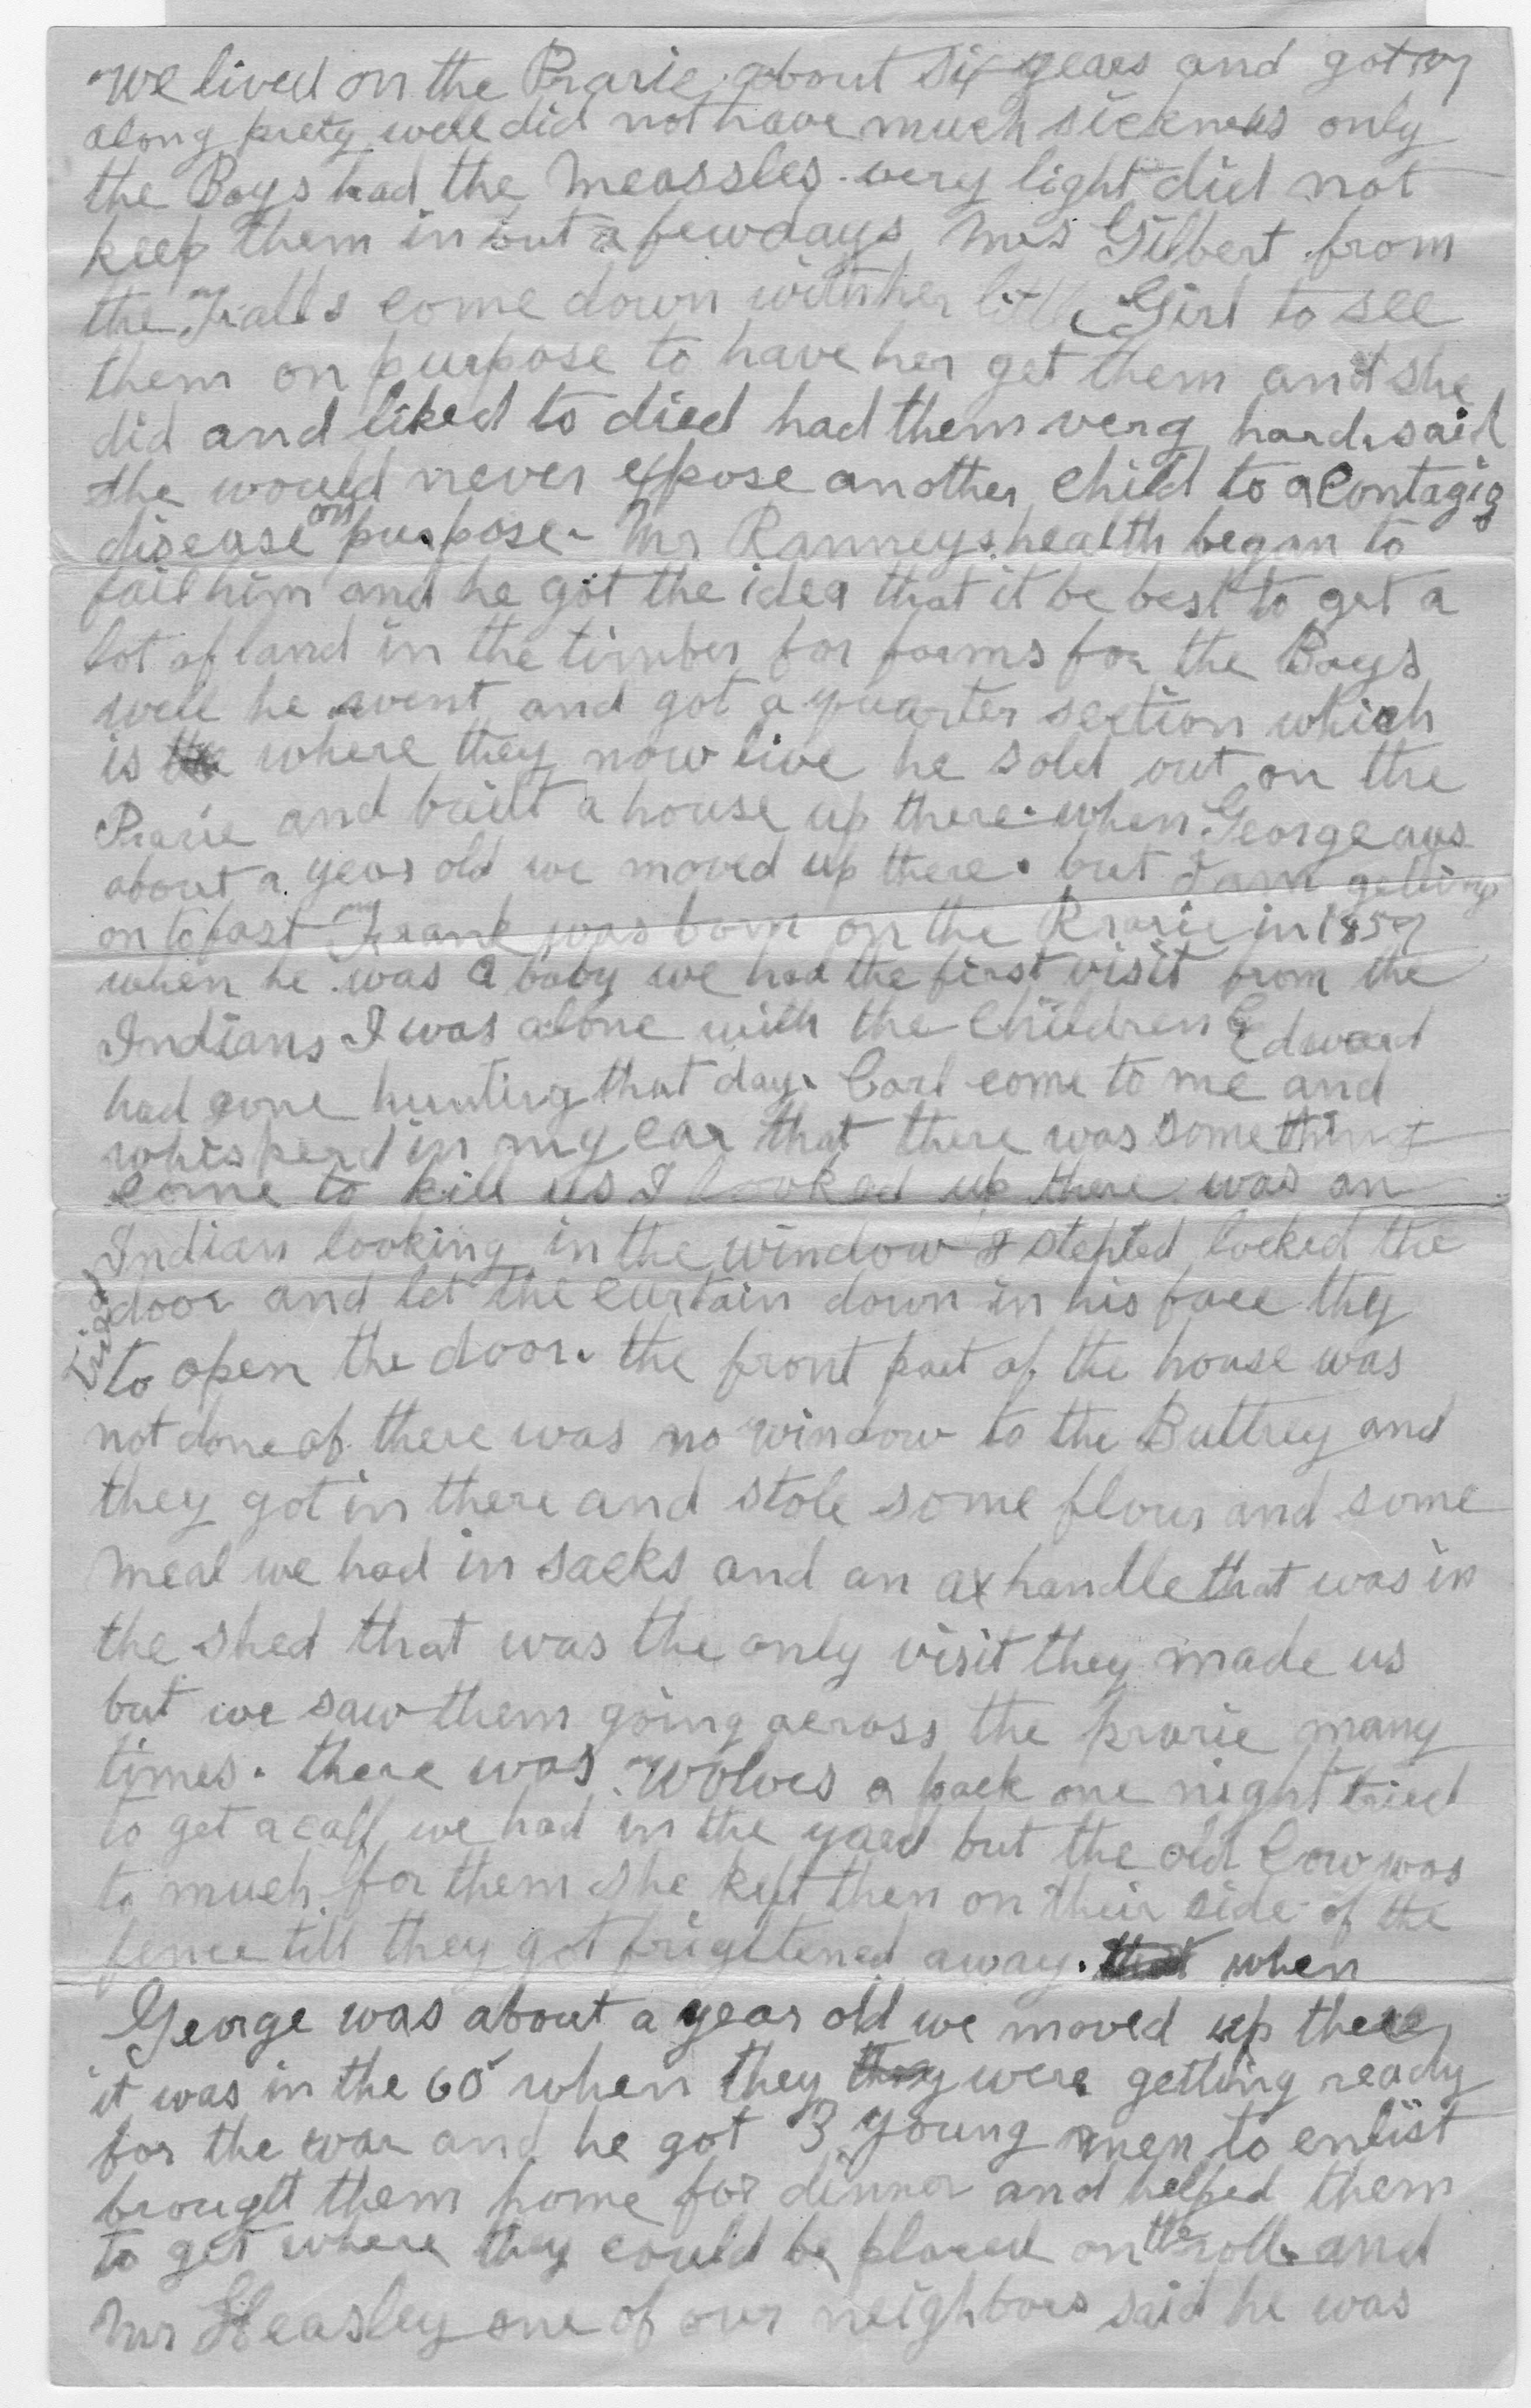 We lived on the Prarie about six years and got
along prety well did not have much sickness only
the Boys had the meassles very light did not
keep them in but a few days Mrs Gilbert from
the Falls come down with her little Girl to see
them on purpose to have her get them and she
did and liked to died had them very hard said
she would never expose another child to a Contagio
disease on purpose. Mr Ranneys health began to
fail him and he got the idea that it be best to get a
lot of land in the timber for farms for the Boys
well he went and got a quarter section which
is where they now live he sold out on the
Prarie and built a house up there. when George was
about a year old we moved up there. but I am getting
on to fast Frank was born on the Prarie in 1859
when he was a baby we had the first visit from the
Indians I was alone with the Children Edward
had gone hunting that day. Carl come to me and
whisperd in my ear that there was something
come to kill us I looked up there was an
Indian looking in the window I stepted locked the
door and let the curtain down in his face they
Tried to open the door. the front part of the house was
not done of there was no window to the Buttrey and
they got in there and stole some flour and some
meal we had in sacks and an ax handle that was in
the shed that was the only visit they made us
but we saw them going across the prarie many
times. there was wolves a pack one night tried
to get a calf we had in the yard but the old Cow was
to much for them she kept them on their side of the
fence till they got frightened away. when
George was about a year old we moved up there
it was in the 60 when they were getting ready
for the war and he got 3 young men to enlist
brought them home for dinner and helped them
to get where they could be placed on the roll and
Mr Heasley one of our neighbors said he was